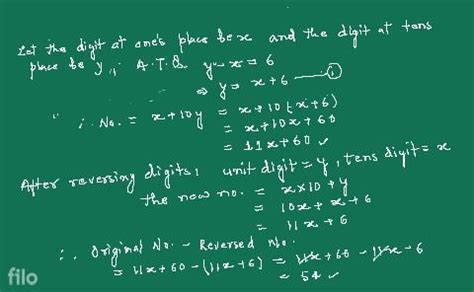 Let the digit at one's place be x and the digit at tens
place be y, A.T.Q. y-x=6
⇒ y = x+6 — ①
∴ No. = x+10y = x+10(x+6)
= x+10x+60
= 11x+60 ✓
After reversing digits: unit digit = y, tens digit = x
the new no. = x×10+y
= 10x+x+6
= 11x+6
∴ Original No. - Reversed No.
= 11x+60-(11x+6) = 11x+60-11x-6
= 54 ✓
filo